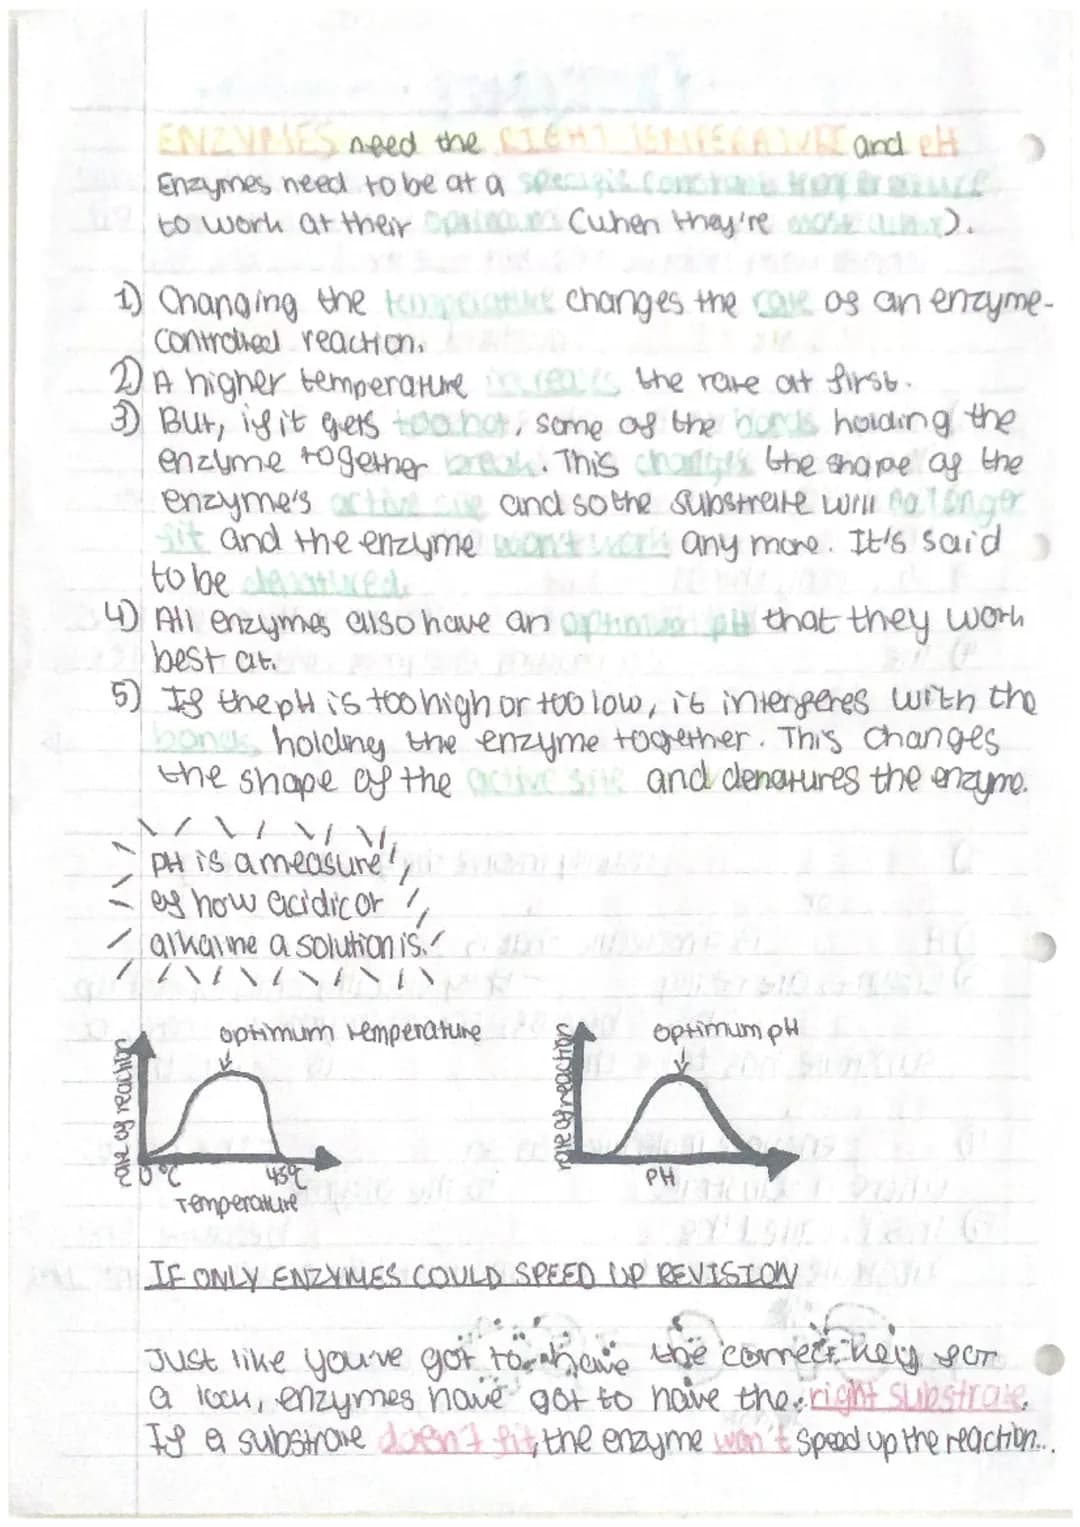 ENZYMES need the RIGHT TEMPERATURE and pH
Enzymes need to be at a specific constant temperature
to work at their optimum (when they're most active).
1) Changing the temperature changes the rate of an enzyme-
controlled reaction.
2) A higher temperature increases the rate at first.
3) But, if it gets too hot, some of the bonds holding the
enzyme together break. This changes the shape of the
enzyme's active site and so the substrate will no longer
fit and the enzyme won't work any more. It's said
to be denatured.
4) All enzymes also have an optimum pH that they work
best at.
5) If the pH is too high or too low, it interferes with the
bonds holding the enzyme together. This changes
the shape of the active site and denatures the enzyme.
PH is a measure
of how acidic or
alkaline a solution is.
optimum temperature
rate of reaction
0°C 45°C
Temperature
optimum pH
rate of reaction
PH
IF ONLY ENZYMES COULD SPEED UP REVISION
Just like you've got to have the correct key for
a lock, enzymes have got to have the right substrate.
If a substrate doesn't fit, the enzyme won't speed up the reaction...